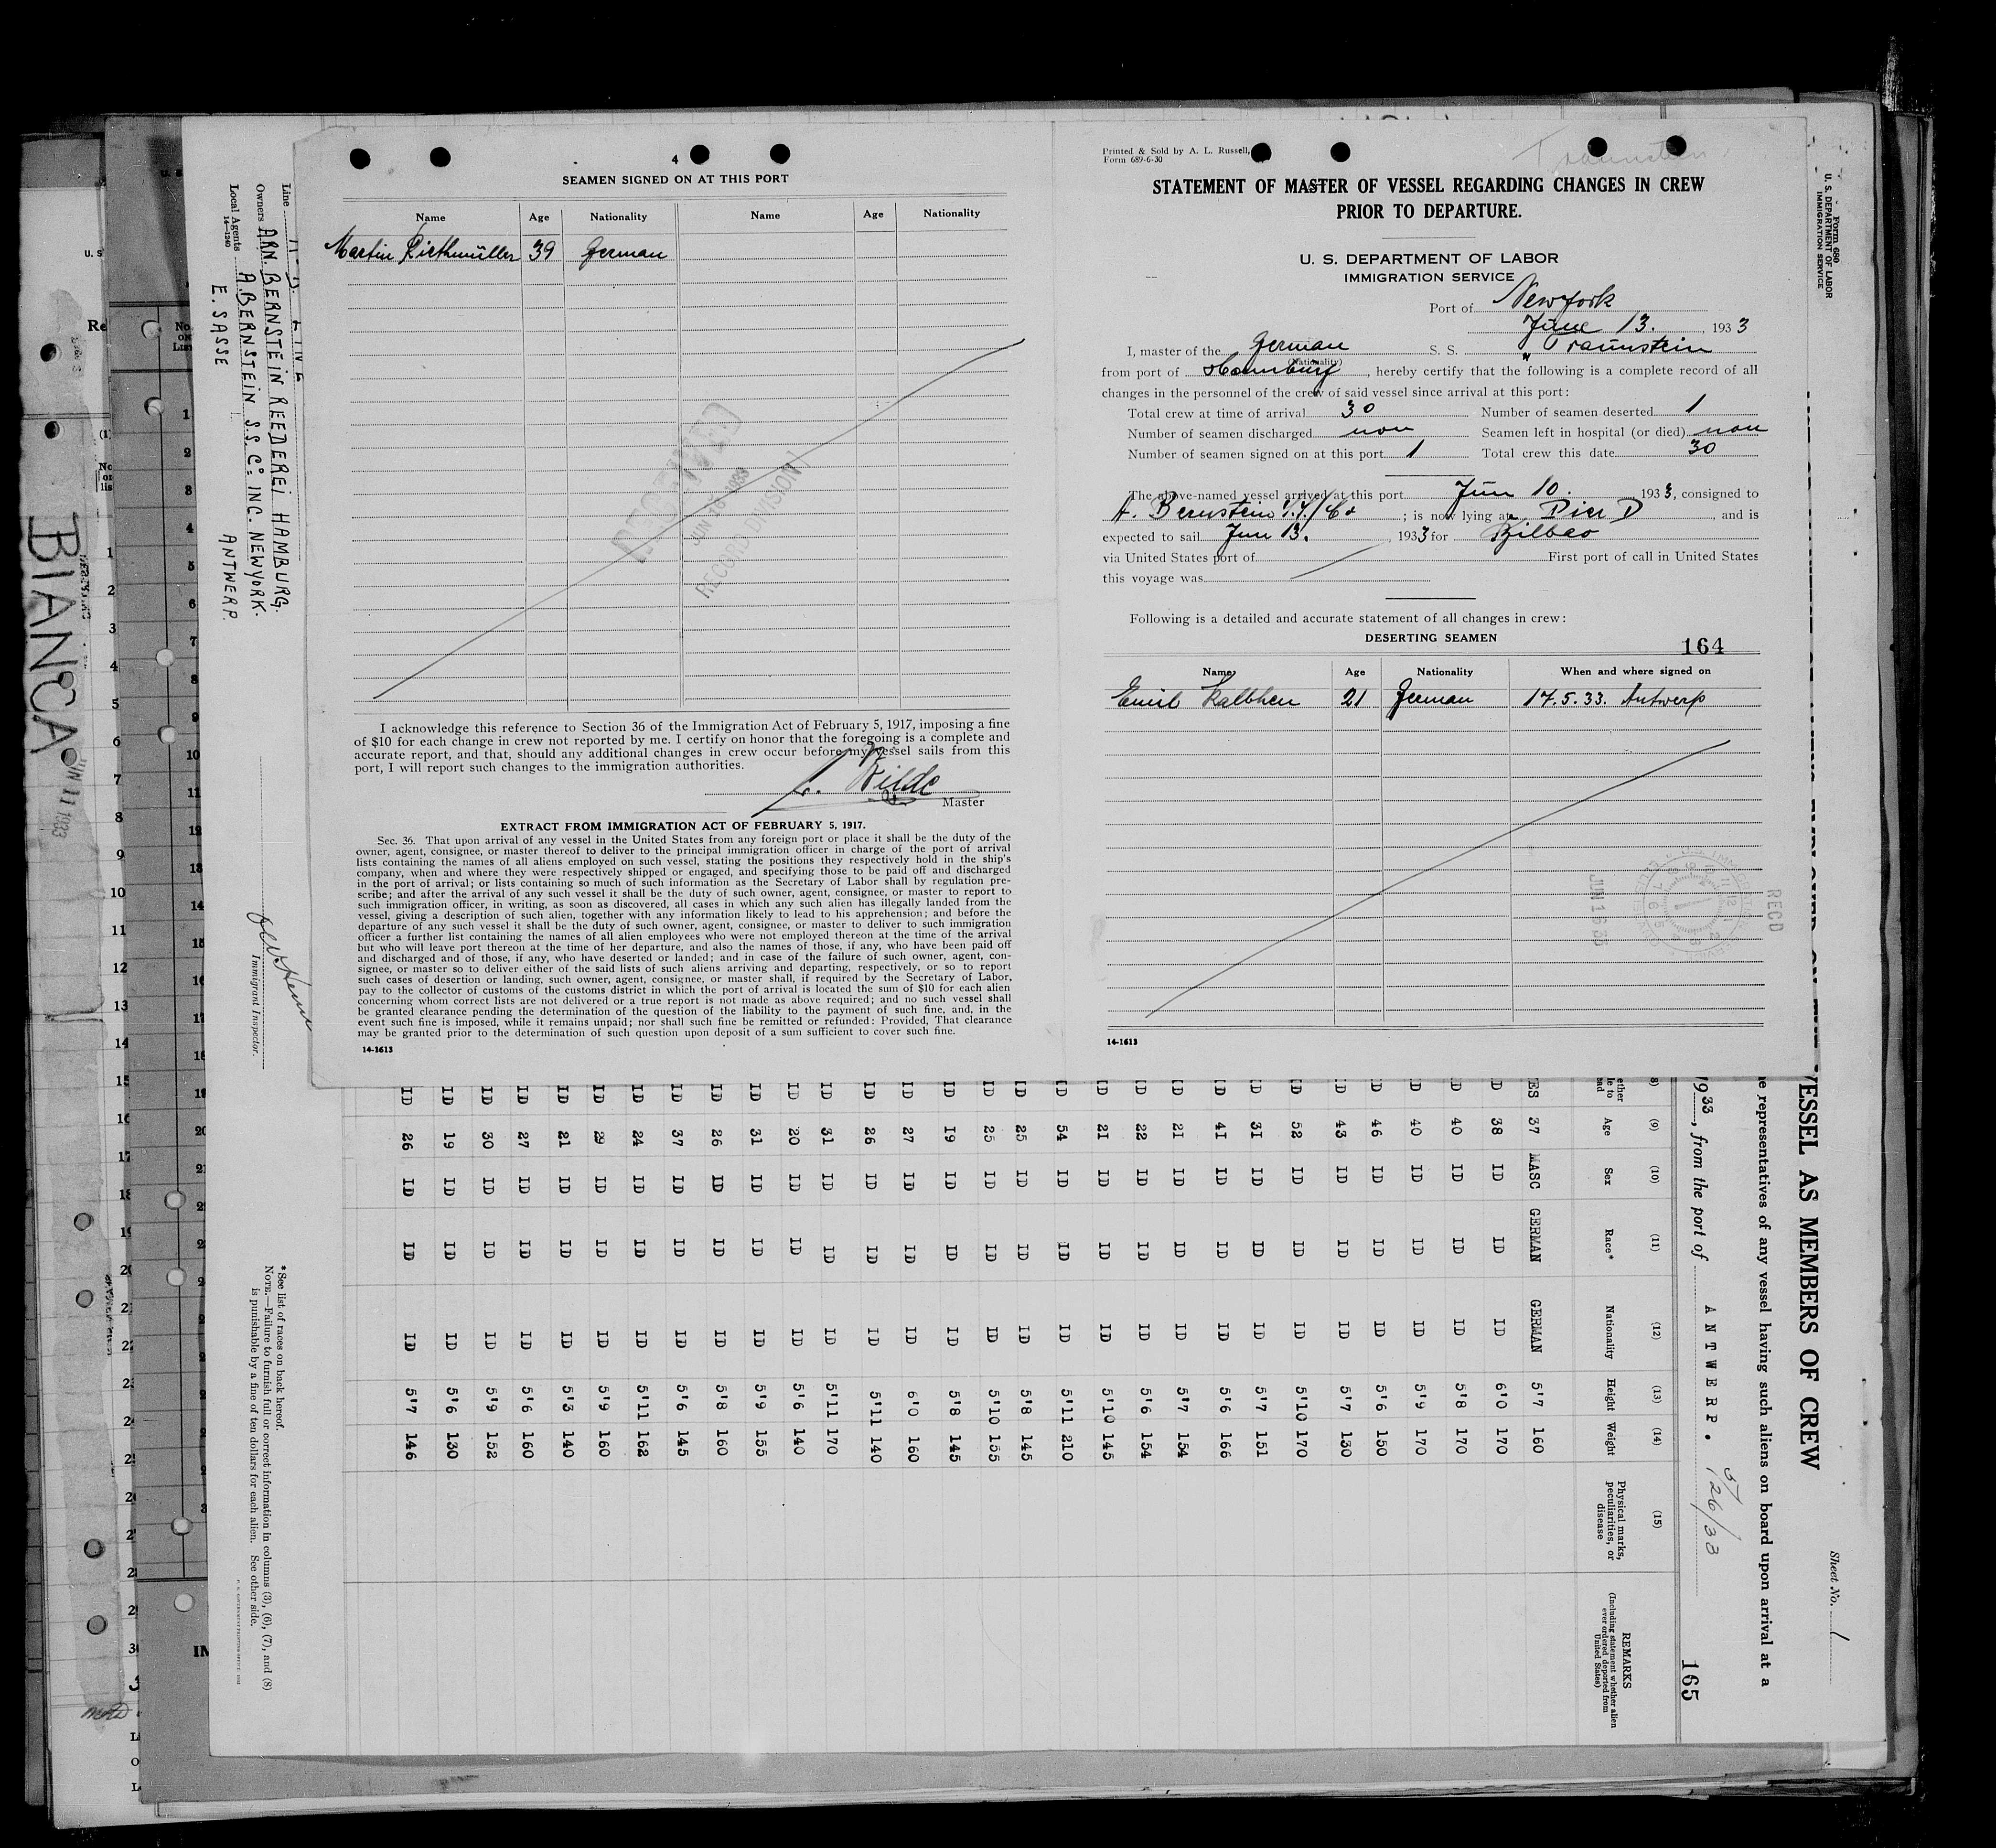 4
SEAMEN SIGNED ON AT THIS PORT
Name Age Nationality Name Age Nationality
Martin Riethmüller 39 German
RECEIVED
JUN 16 1933
RECORD DIVISION
I acknowledge this reference to Section 36 of the Immigration Act of February 5, 1917, imposing a fine
of $10 for each change in crew not reported by me. I certify on honor that the foregoing is a complete and
accurate report, and that, should any additional changes in crew occur before my vessel sails from this
port, I will report such changes to the immigration authorities.
Wilde
Master
EXTRACT FROM IMMIGRATION ACT OF FEBRUARY 5, 1917.
Sec. 36. That upon arrival of any vessel in the United States from any foreign port or place it shall be the duty of the
owner, agent, consignee, or master thereof to deliver to the principal immigration officer in charge of the port of arrival
lists containing the names of all aliens employed on such vessel, stating the positions they respectively hold in the ship's
company, when and where they were respectively shipped or engaged, and specifying those to be paid off and discharged
in the port of arrival; or lists containing so much of such information as the Secretary of Labor shall by regulation pre-
scribe; and after the arrival of any such vessel it shall be the duty of such owner, agent, consignee, or master to report to
such immigration officer, in writing, as soon as discovered, all cases in which any such alien has illegally landed from the
vessel, giving a description of such alien, together with any information likely to lead to his apprehension; and before the
departure of any such vessel it shall be the duty of such owner, agent, consignee, or master to deliver to such immigration
officer a further list containing the names of all alien employees who were not employed thereon at the time of the arrival
but who will leave port thereon at the time of her departure, and also the names of those, if any, who have been paid off
and discharged and of those, if any, who have deserted or landed; and in case of the failure of such owner, agent, con-
signee, or master so to deliver either of the said lists of such aliens arriving and departing, respectively, or so to report
such cases of desertion or landing, such owner, agent, consignee, or master shall, if required by the Secretary of Labor,
pay to the collector of customs of the customs district in which the port of arrival is located the sum of $10 for each alien
concerning whom correct lists are not delivered or a true report is not made as above required; and no such vessel shall
be granted clearance pending the determination of the question of the liability to the payment of such fine, and, in the
event such fine is imposed, while it remains unpaid; nor shall such fine be remitted or refunded: Provided, That clearance
may be granted prior to the determination of such question upon deposit of a sum sufficient to cover such fine.
14-1613
Printed & Sold by A. L. Russell,
Form 689-6-30
Traunstein
STATEMENT OF MASTER OF VESSEL REGARDING CHANGES IN CREW
PRIOR TO DEPARTURE.
U. S. DEPARTMENT OF LABOR
IMMIGRATION SERVICE
Port of New York
June 13. , 1933
I, master of the German S. S. "Traunstein
(Nationality)
from port of Hamburg , hereby certify that the following is a complete record of all
changes in the personnel of the crew of said vessel since arrival at this port:
Total crew at time of arrival 30 Number of seamen deserted 1
Number of seamen discharged non Seamen left in hospital (or died) non
Number of seamen signed on at this port 1 Total crew this date 30
The above-named vessel arrived at this port Jun 10. 1933, consigned to
A. Bernstein ; is now lying at Pier D , and is
expected to sail Jun 13. , 1933 for Bilbao
via United States port of First port of call in United States
this voyage was
Following is a detailed and accurate statement of all changes in crew:
DESERTING SEAMEN
164
Name Age Nationality When and where signed on
Emil Kalbhen 21 German 17.5.33. Antwerp
RECD
JUN 16 33
14-1613
Line
Owners ARN. BERNSTEIN REEDEREI HAMBURG.
Local Agents A. BERNSTEIN S.S. Co. INC. NEWYORK.
E. SASSE ANTWERP.
14-1240
Immigrant Inspector.
BIANCA
JUN 11 1933
Form 680
U. S. DEPARTMENT OF LABOR
IMMIGRATION SERVICE
VESSEL AS MEMBERS OF CREW
Sheet No. 1
representatives of any vessel having such aliens on board upon arrival at a
1933, from the port of ANTWERP.
126/33
165
(9) (10) (11) (12) (13) (14) (15)
Age Sex Race* Nationality Height Weight Physical marks, peculiarities, or disease REMARKS
(Including statement whether alien ever ordered deported from United States)
ES 37 MASC GERMAN GERMAN 5'7 160
ID 38 ID ID ID 6'0 170
ID 40 ID ID ID 5'8 170
ID 40 ID ID ID 5'9 170
ID 46 ID ID ID 5'6 150
ID 43 ID ID ID 5'7 130
ID 52 ID ID ID 5'10 170
ID 31 ID ID ID 5'7 151
ID 41 ID ID ID 5'6 166
ID 21 ID ID ID 5'7 154
ID 22 ID ID ID 5'6 154
ID 21 ID ID ID 5'10 145
ID 54 ID ID ID 5'11 210
ID 25 ID ID ID 5'8 145
ID 25 ID ID ID 5'10 155
ID 19 ID ID ID 5'8 145
ID 27 ID ID ID 6'0 160
ID 26 ID ID ID 5'11 140
ID 31 ID ID ID 5'11 170
ID 20 ID ID ID 5'6 140
ID 31 ID ID ID 5'9 155
ID 26 ID ID ID 5'8 160
ID 37 ID ID ID 5'6 145
ID 24 ID ID ID 5'11 162
ID 29 ID ID ID 5'9 160
ID 21 ID ID ID 5'3 140
ID 27 ID ID ID 5'6 160
ID 30 ID ID ID 5'9 152
ID 19 ID ID ID 5'6 130
ID 26 ID ID ID 5'7 146
*See list of races on back hereof.
NOTE.—Failure to furnish full or correct information in columns (3), (6), (7), and (8)
is punishable by a fine of ten dollars for each alien. See other side.